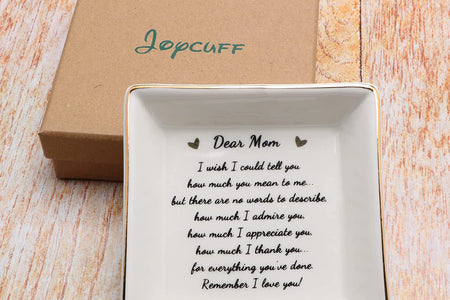 Joycuff
Dear Mom
I wish I could tell you
how much you mean to me...
but there are no words to describe.
how much I admire you.
how much I appreciate you.
how much I thank you...
for everything you've done.
Remember I love you!